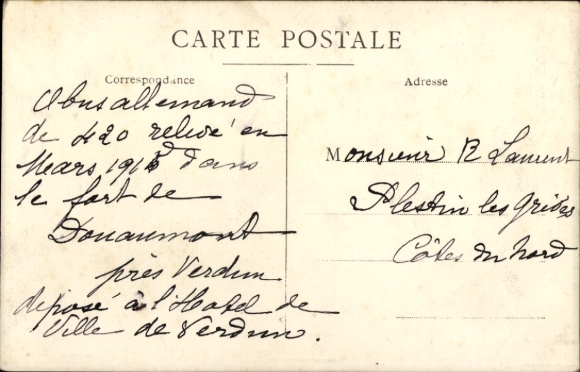 CARTE POSTALE
Correspondance
Adresse
Obus allemand
de 420 relevé en
Mars 1915 dans
le fort de
Douaumont
près Verdun
déposé à l'Hotel de
Ville de Verdun.
Monsieur R Laurent
Plestin les Grèves
Côtes du Nord